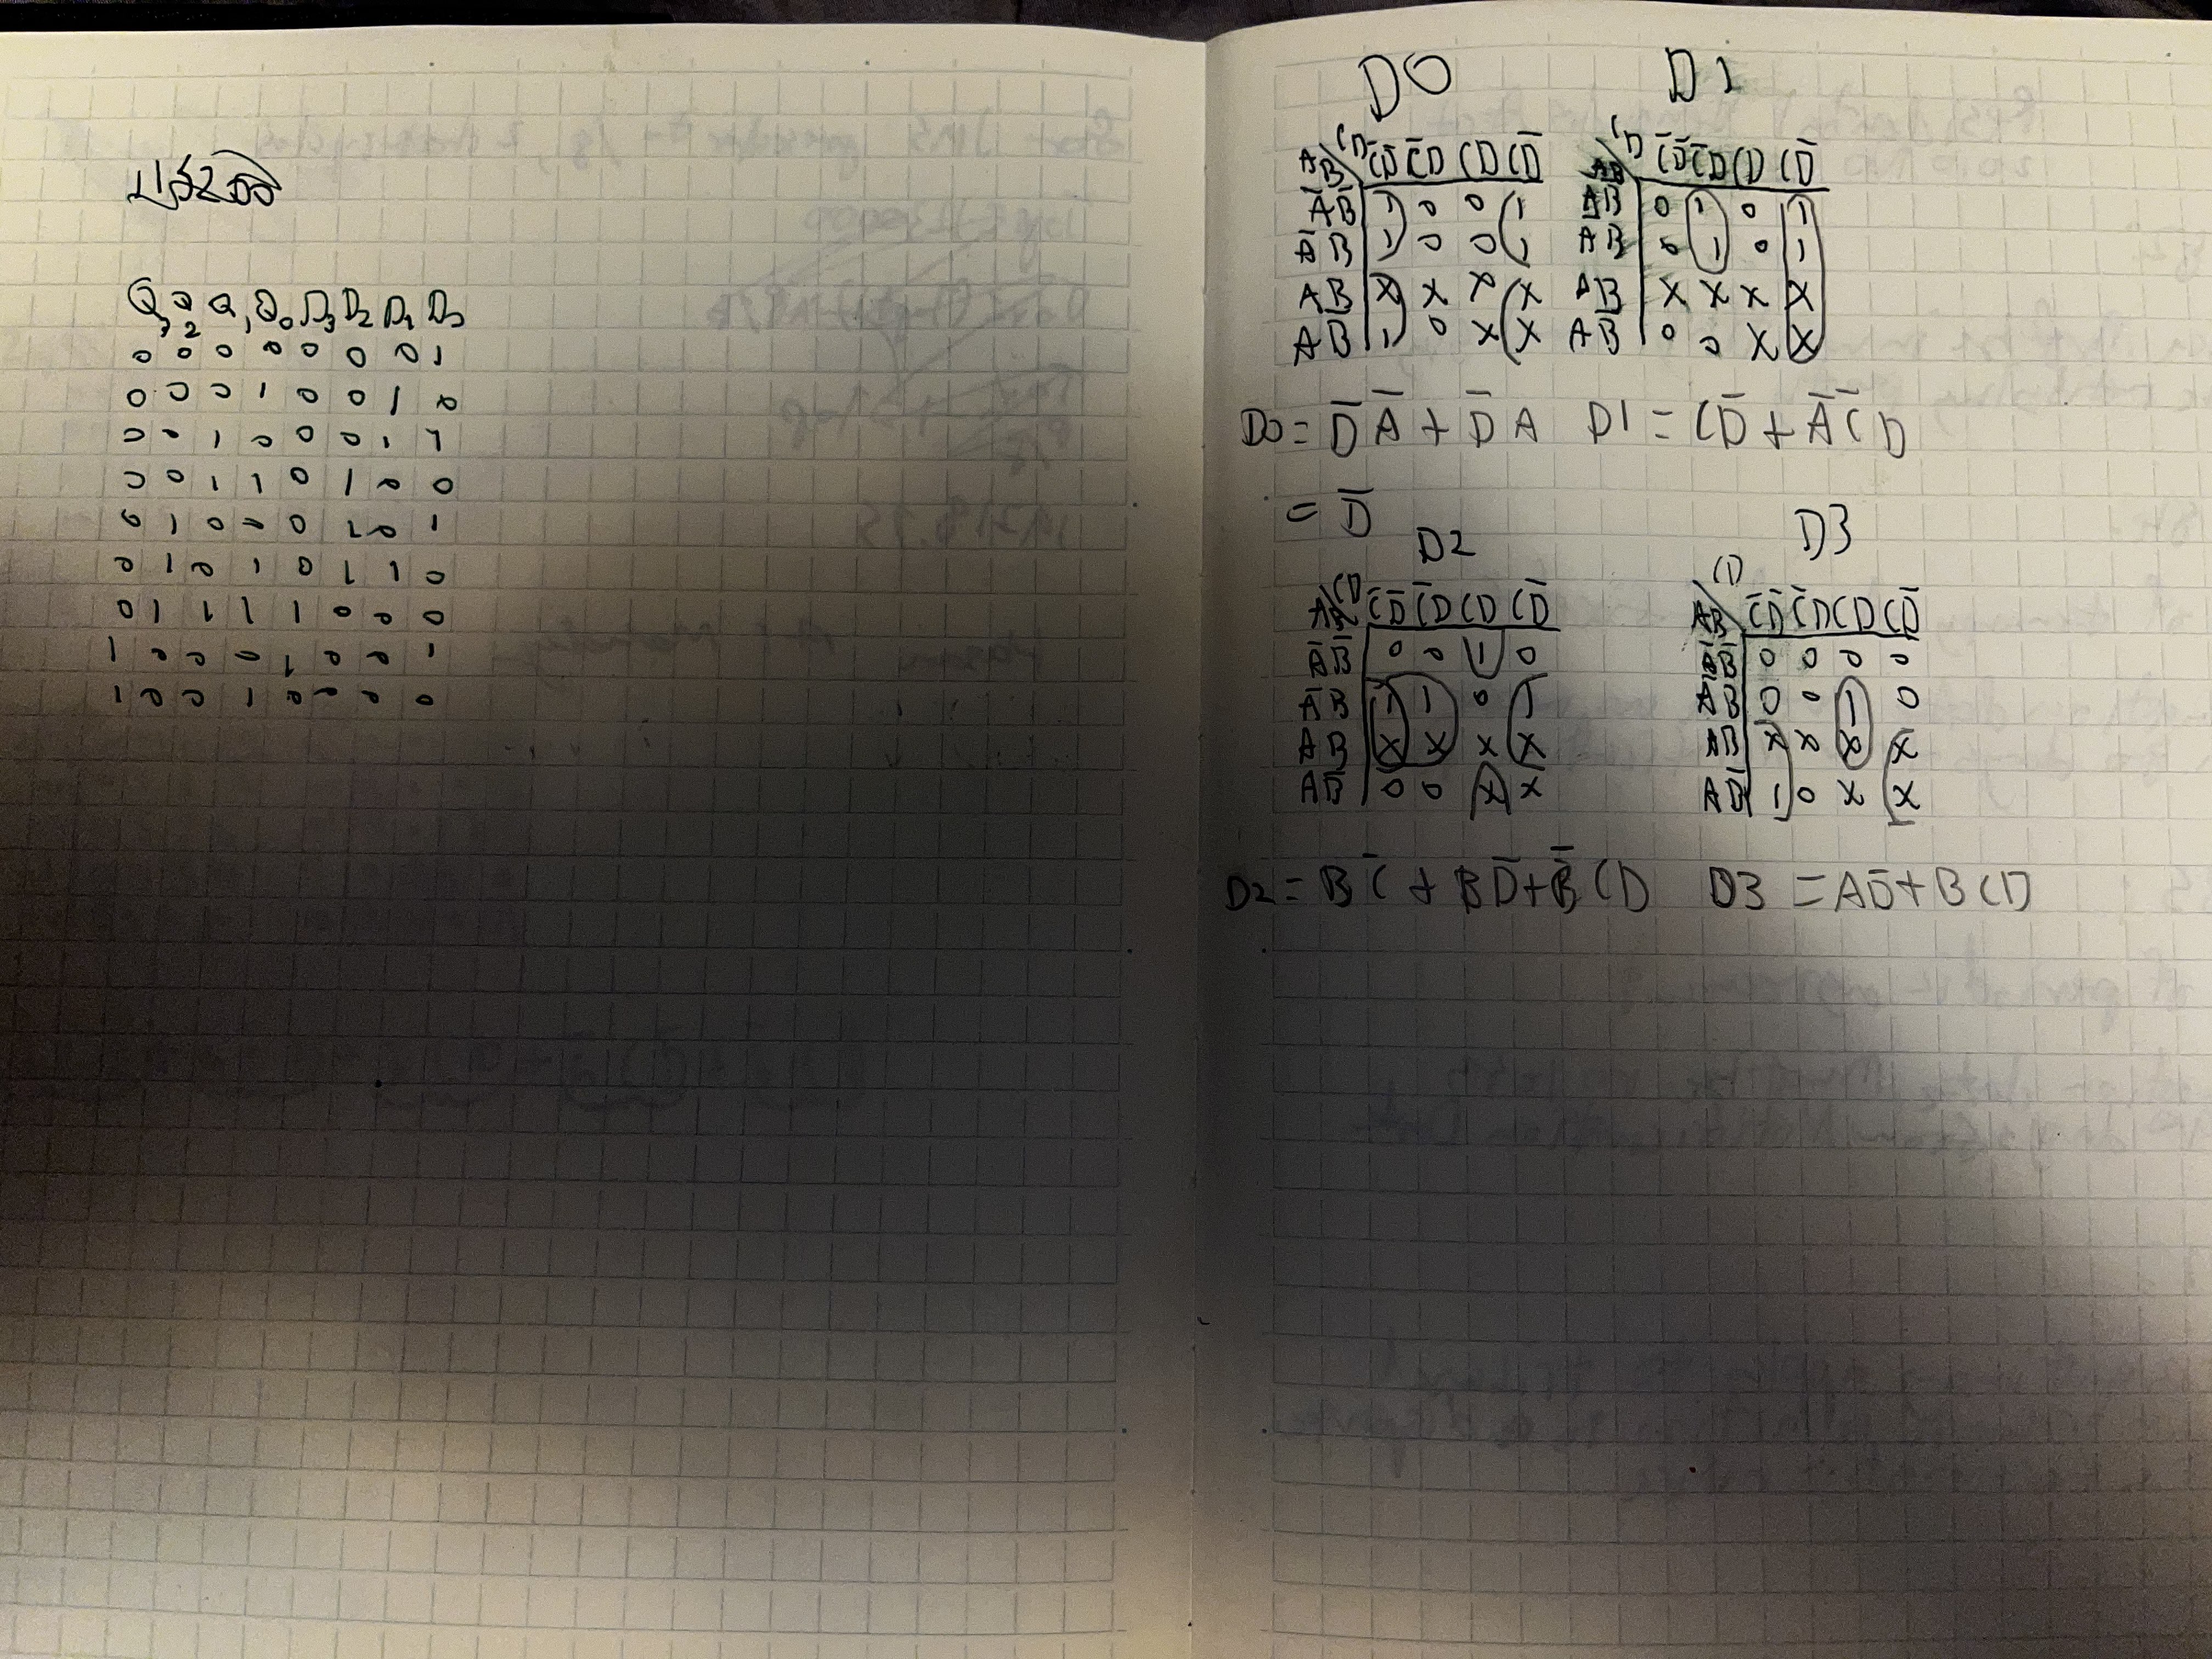 Q3 Q2 Q1 Q0 D3 D2 D1 D0
0 0 0 0 0 0 0 1
0 0 0 1 0 0 1 0
0 0 1 0 0 0 1 1
0 0 1 1 0 1 0 0
0 1 0 0 0 1 0 1
0 1 0 1 0 1 1 0
0 1 1 1 1 0 0 0
1 0 0 0 1 0 0 1
1 0 0 1 0 0 0 0
D0
AB\CD C̄D̄ C̄D CD CD̄
ĀB̄ 1 0 0 1
ĀB 1 0 0 1
AB X X X X
AB̄ 1 0 X X
D0 = D̄Ā + D̄A
= D̄
D1
AB\CD C̄D̄ C̄D CD CD̄
ĀB̄ 0 1 0 1
ĀB 0 1 0 1
AB X X X X
AB̄ 0 0 X X
D1 = CD̄ + ĀC̄D
D2
AB\CD C̄D̄ C̄D CD CD̄
ĀB̄ 0 0 1 0
ĀB 1 1 0 1
AB X X X X
AB̄ 0 0 X X
D2 = BC̄ + BD̄ + B̄CD
D3
AB\CD C̄D̄ C̄D CD CD̄
ĀB̄ 0 0 0 0
ĀB 0 0 1 0
AB X X X X
AB̄ 1 0 X X
D3 = AD̄ + BCD